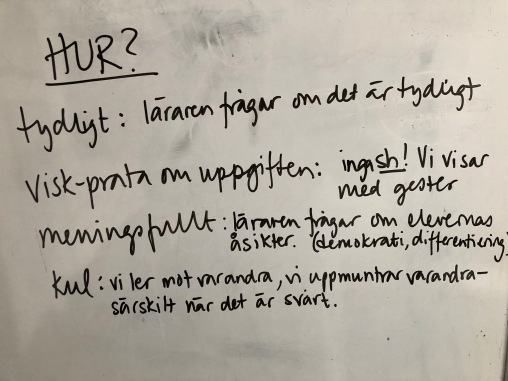 HUR?
tydligt: läraren frågar om det är tydligt
Visk-prata om uppgiften: inga sh! Vi visar
med gester
meningsfullt: läraren frågar om elevernas
åsikter. (demokrati, differentiering)
kul: vi ler mot varandra, vi uppmuntrar varandra-
särskilt när det är svårt.